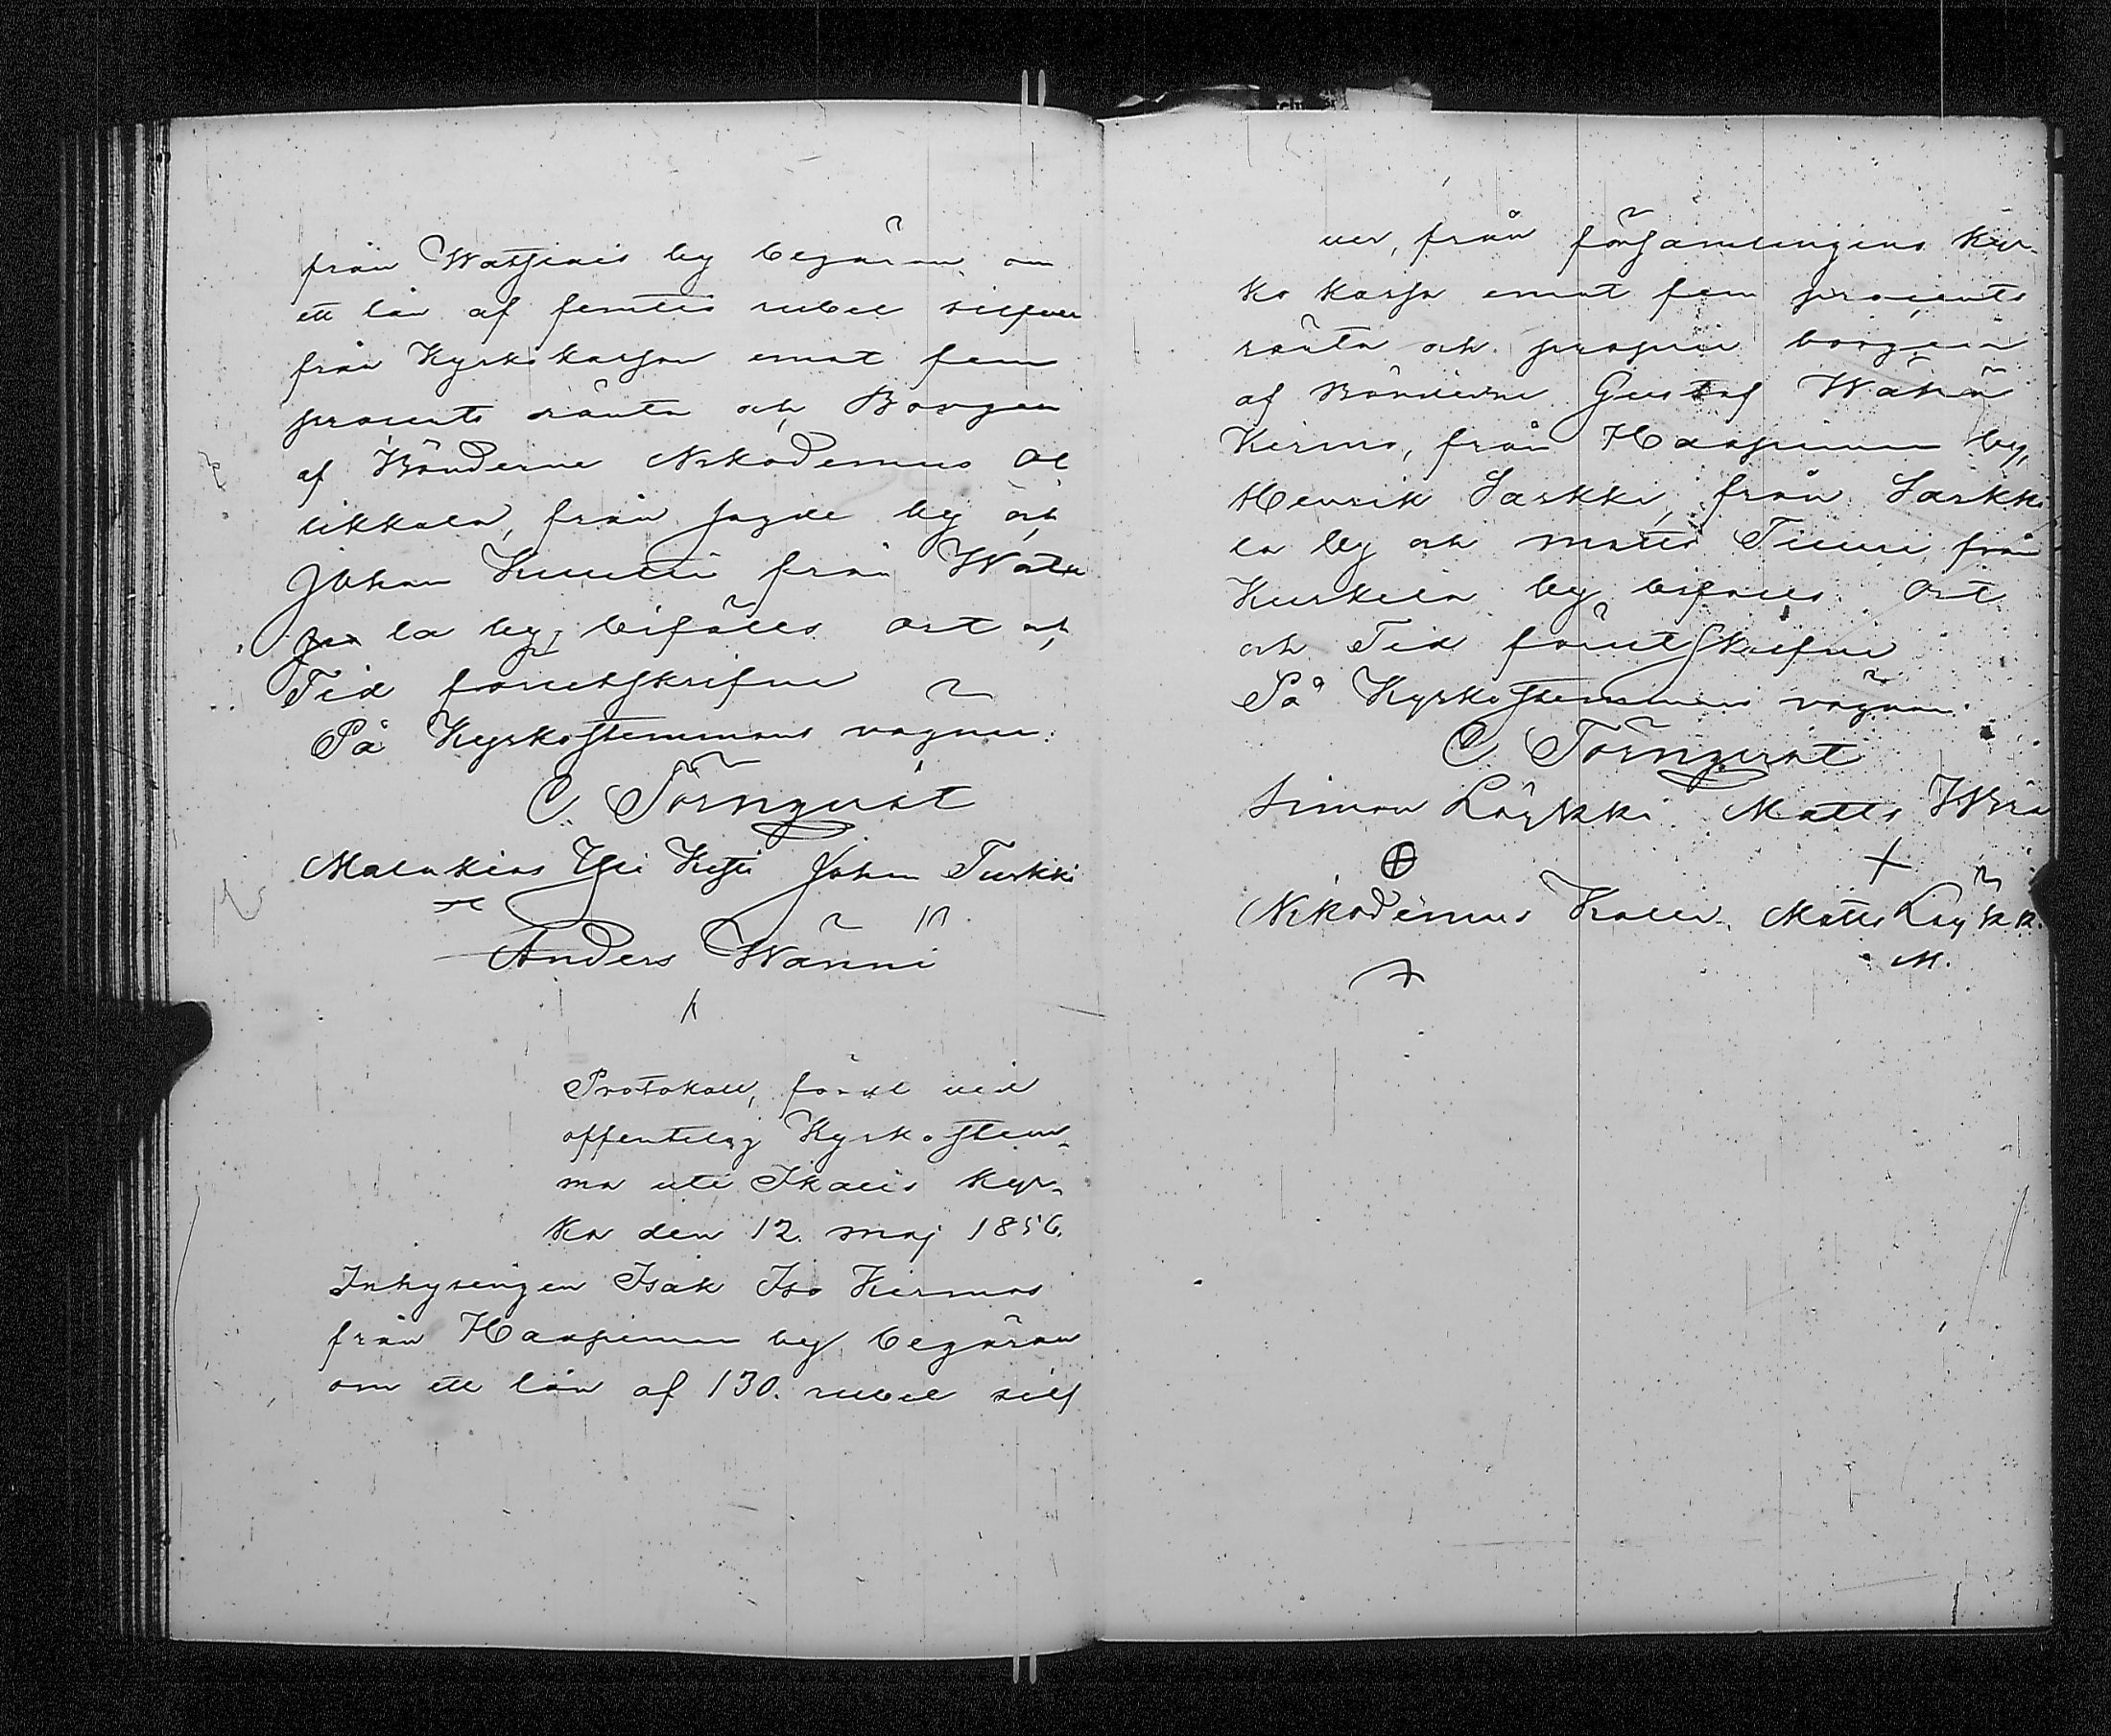 från Watsiais by begäran om
ett lån af femtio rubel silfver
från Kyrkokassan emot fem
procents ränta och Borgen
af Bönderne Nikodemus Ol
likkala, från Jyde by och
Johan Knuuti från Wate
la by, bifölls Ort och
Tid föruthskrifne
På Kyrkostemmans vägnar:
C. Törnqvist
Malakias Yli Kesti Johan Turkki
Anders Wänni
Protokoll, fördt vid
offentelig Kyrkostem¬
ma uti Ikalis kyr¬
ka den 12. Maj 1856.
Inhysingen Isak Iso Kirmos
från Haapimaa by begäran
om ett lån af 130. rubel silf
ver, från församlingens kyr¬
ko kassa emot fem procents
ränta och proprie borgen
af Bönderne Gustaf Wähä
Kirmo, från Haapimaa by,
Henrik Sarkki, från Sarkki
la by och Matts Tiuri från
Kurkela by bifölls. Ort
och Tid förutskrifne
På Kyrkostemmans vägnar:
C. Törnqvist
Simon Löykki Matts
Nikodemus Matts Löykk.
M.